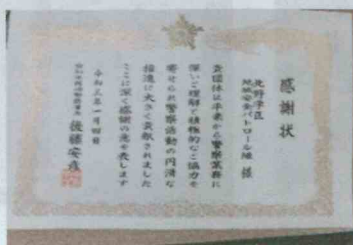 感謝状
北野学区
地域安全パトロール隊 様
貴団体は平素から警察業務に
深いご理解と積極的なご協力を
寄せられ警察活動の円滑な
推進に大きく貢献されました
ここに深く感謝の意を表します
令和三年一月四日
後藤安彦